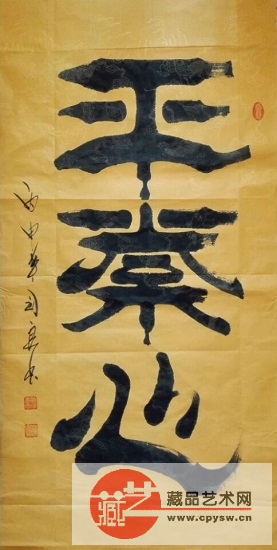 平常心
丙申年
藏艺
藏品艺术网
www.cpysw.cn